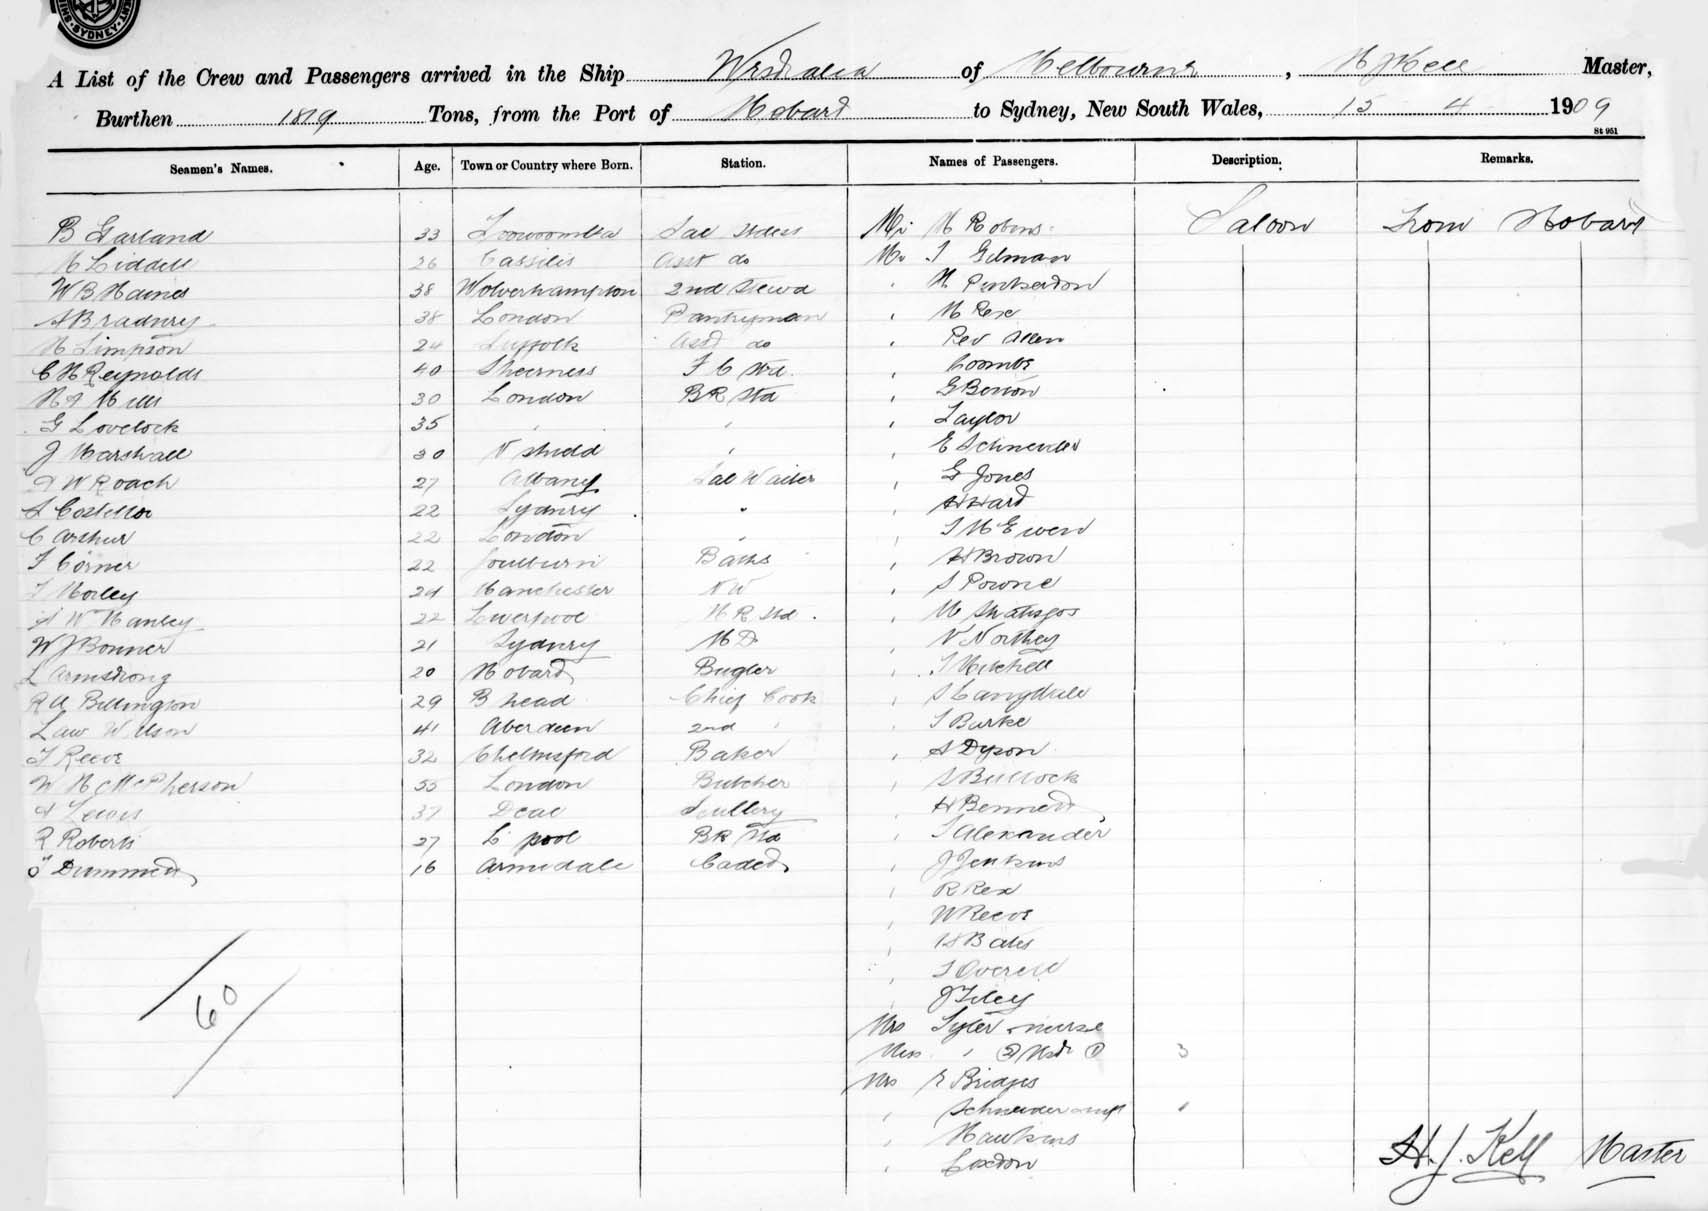 SYDNEY
A List of the Crew and Passengers arrived in the Ship Westralia of Melbourne, H J Kell Master,
Burthen 1819 Tons, from the Port of Hobart to Sydney, New South Wales, 15 4 1909
St 951
Seamen's Names. Age. Town or Country where Born. Station. Names of Passengers. Description. Remarks.
B Garland 33 Toowoomba Sal Stdess Mr H Robins Saloon From Hobart
M Liddell 26 Cassilis Asst do Mr T Gilman
W B Haines 38 Wolverhampton 2nd Stewd " H Pinkerton
A Bradnry 38 London Pantryman " H Rex
H Simpson 24 Suffolk Asst do " Rev Allen
C H Reynolds 40 Sheerness F C Std " Coombe
H J Mills 30 London BR Std " G Boston
G Lovelock 35 " " " Taylor
J Marshall 30 N Shield " " E Schneider
A W Roach 27 Albany Sal Waiter " G Jones
S Costelloe 22 Sydney " " H Ward
C Arthur 22 London " " T McEwen
F Corner 22 Goulburn Baths " H Brown
T Morley 24 Manchester NW " S Powne
A W Manley 22 Liverpool M R Std "
W J Bonner 21 Sydney M D " N Northey
L Armstrong 20 Hobart Bugler " T Mitchell
R A Billington 29 B head Chief Cook " S Langdale
Law Wilson 41 Aberdeen 2nd " " T Burke
T Reeve 32 Chelmsford Baker " A Dyson
W H McPherson 55 London Butcher " S Bullock
A Lewis 37 Deal Scullery " H Bennett
R Roberts 27 L'pool BR Std " T Alexander
O Dummett 16 Armidale Cadet " J Jenkins
" R Rex
" W Reeve
" H Bates
" T Overell
" J Tiley
Mrs Tyler & nurse
Miss " (2) Mstr (1) 3
Mrs E Bridges
" Schneider & inft 1
" Hawkins
" Coxdon
60
H. J. Kell Master